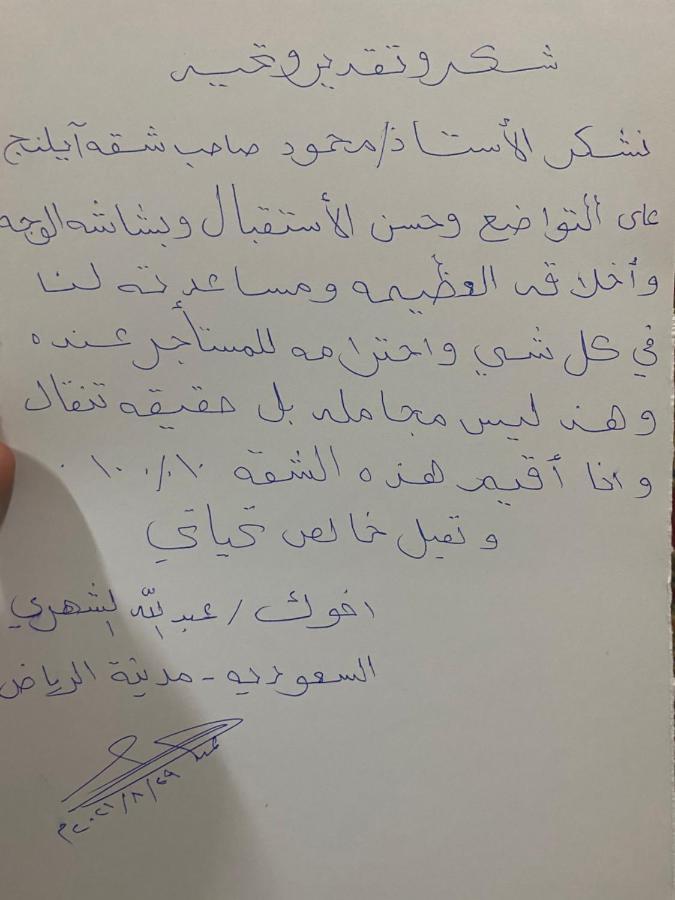 شكر وتقدير وتحيه
نشكر الأستاذ/محمود صاحب شقه آيلنج
على التواضع وحسن الأستقبال وبشاشه الوجه
وأخلاقه العظيمه ومساعدته لنا
في كل شي واحترامه للمستأجر عنده
وهذ ليس مجامله بل حقيقه تنقال
وانا أقيم هذه الشقة ١٠٠٪
وتقبل خالص تحياتي
اخوك / عبدالله الشهري
السعوديه - مدينة الرياض
٢٠٢١/٨/٢٩م